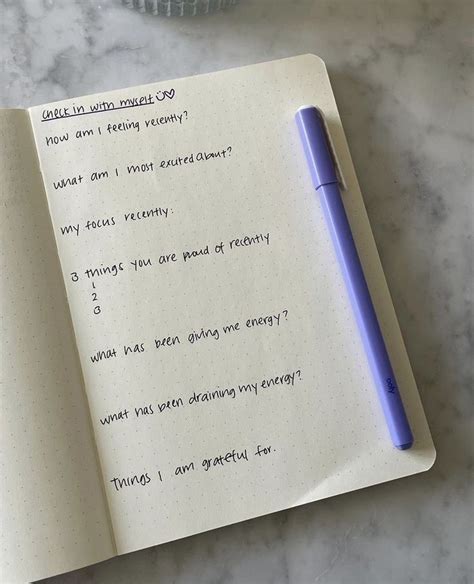 check in with myself ü♡
how am I feeling recently?
what am I most excited about?
my focus recently:
3 things you are proud of recently
1
2
3
what has been giving me energy?
what has been draining my energy?
things I am grateful for.